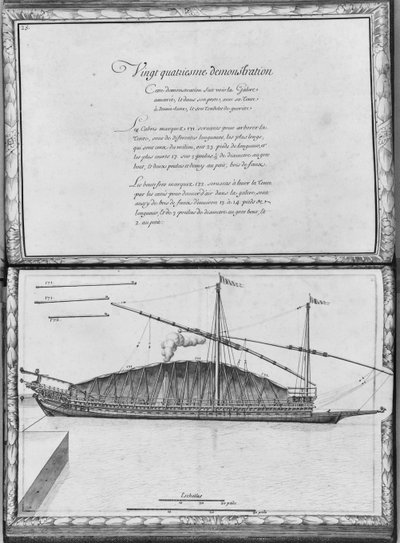 25.
Vingt quatriesme demonstration
Cette demonstration fait voir la Galere
amarrée, et dans son poste, avec sa Tente
à demie
Les Cabris marquez 171 servants pour arborer la
Tente, sont de differentes longueurs, les plus longs,
qui sont ceux du milieu, ont 23 pieds de longueur, et
les plus courts 17 sur 3 poulces ½ de diametre au gros
bout, et deux poulces et demy au petit, bois de faux.
Les boutefores marquez 172 servants à lever la Tente
par les costés pour donner d'air dans la galere, sont
aussy de bois de faux d'environ 13 à 14 pieds de
longueur, et de 3 poulces de diametre au gros bout, et
2 au petit.
171
171
172
Eschelles
de pieds
de pieds